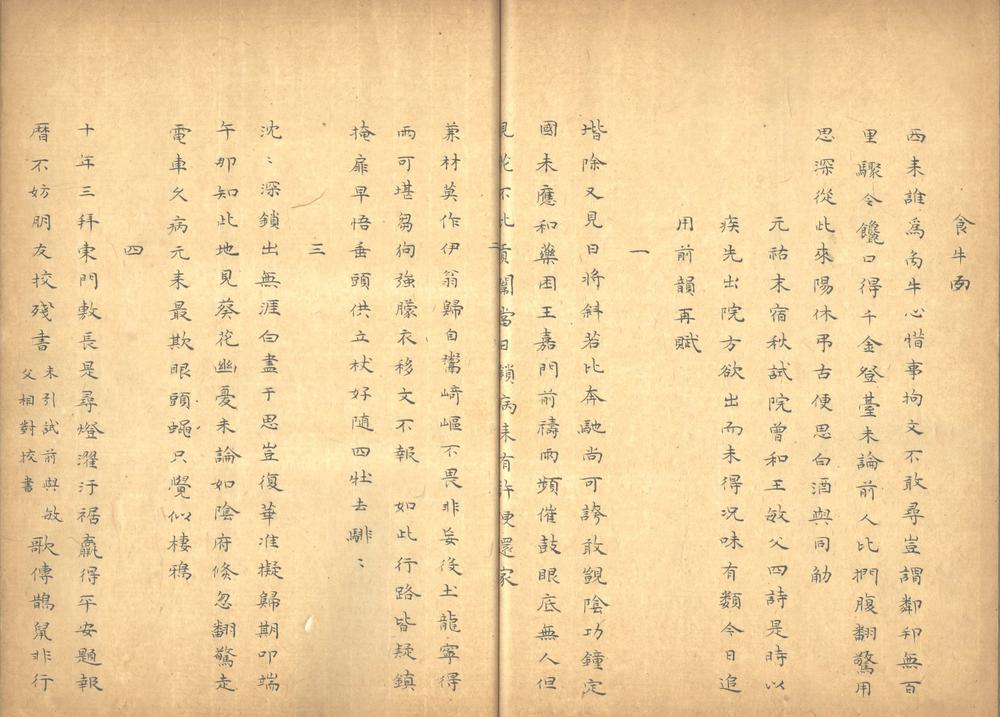 食牛肉
西來誰爲禹牛心惜事拘文不敢尋豈謂鄰邦無百
里驟令饞口得千金登臺未論前人比捫腹翻驚用
思深從此來陽休弔古便思白酒與同斟
元祐末宿秋試院曾和王敏父四詩是時以
疾先出院方欲出而未得况味有類今日追
用前韻再賦
一
堦除又見日將斜若比奔馳尚可誇敢覬陰功鐘定
國未應和藥困王嘉門前禱雨頻催鼓眼底無人但
見花不比賁闈當日鎖病來有許便還家
二
兼材莫作伊翁歸自鬻崎嶇不畏非妄後土龍寧得
雨可堪芻狗強朦衣移文不報 如此行路皆疑鎮
掩扉早悟垂頭供立杖好随四牡去騑〻
三
沈〻深鎖出無涯白盡于思豈復華准擬歸期叩端
午那知此地見葵花幽憂未論如陰府倏忽翻驚走
電車久病元來最欺眼頭蠅只覺似棲鴉
四
十年三拜東門敷長是尋燈濯汙裾贏得平安題報
曆不妨朋友挍殘書未引試前與敏
父相對挍書歌傳鵲䑕非行